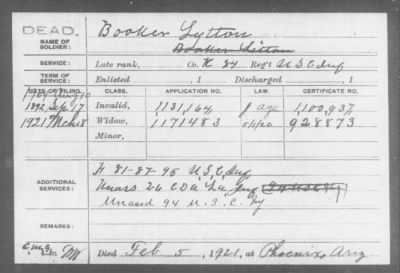 DEAD.
Booker Lytton
NAME OF SOLDIER:
Booker Liston
SERVICE: Late rank, Co. K 84 Regt U.S.C. Inf
TERM OF SERVICE: Enlisted , 1 Discharged , 1
DATE OF FILING. CLASS. APPLICATION NO. LAW. CERTIFICATE NO.
1892 Sep. 17 Invalid, 1,131,164 age 1,100,937
1921 Mch 8 Widow, 1171483 5/1/20 928873
Minor,
ADDITIONAL SERVICES:
H 81-87-95 U.S.C. Inf
Unass 26 Co La. Inf
Unassd 94 U.S.C. Inf
REMARKS:
Died Feb 5, 1921, at Phoenix, Ariz